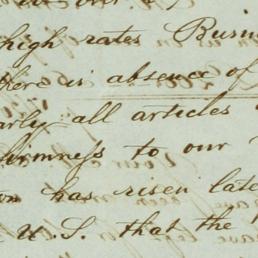 high rates Busin
there is absence of
arly all articles
irmness to our
has risen late
U.S. that the